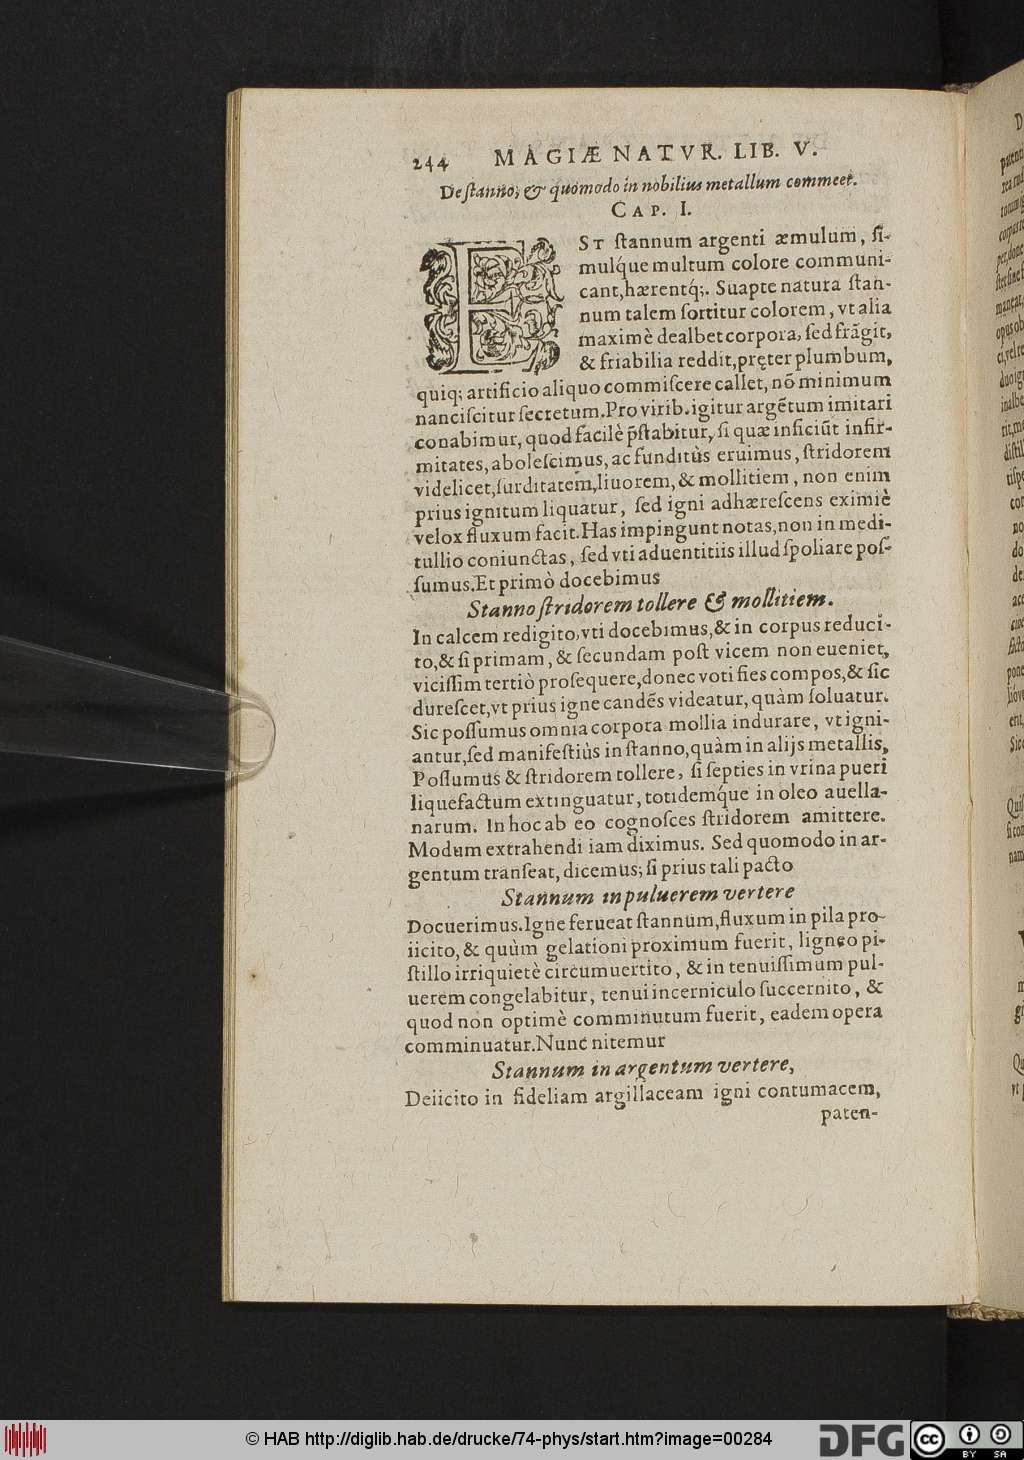 244 MAGIÆ NATVR. LIB. V.
De ſtanno, & quomodo in nobilius metallum commeet.
CAP. I.
EST ſtannum argenti æmulum, ſi-
mulq́ue multum colore communi-
cant, hærentq́;. Suapte natura ſtan-
num talem ſortitur colorem, vt alia
maximè dealbet corpora, ſed frãgit,
& friabilia reddit, pręter plumbum,
quiq; artificio aliquo commiſcere callet, nõ minimum
nanciſcitur ſecretum. Pro virib. igitur argẽtum imitari
conabimur, quod facilè p̃ſtabitur, ſi quæ inficiũt infir-
mitates, aboleſcimus, ac funditùs eruimus, ſtridorem
videlicet, ſurditatem, liuorem, & mollitiem, non enim
prius ignitum liquatur, ſed igni adhæreſcens eximiè
velox fluxum facit. Has impingunt notas, non in medi-
tullio coniunctas, ſed vti aduentitiis illud ſpoliare poſ-
ſumus. Et primò docebimus
Stanno ſtridorem tollere & mollitiem.
In calcem redigito, vti docebimus, & in corpus reduci-
to, & ſi primam, & ſecundam poſt vicem non eueniet,
viciſſim tertiò proſequere, donec voti fies compos, & ſic
dureſcet, vt prius igne candẽs videatur, quàm ſoluatur.
Sic poſſumus omnia corpora mollia indurare, vt igni-
antur, ſed manifeſtiùs in ſtanno, quàm in alijs metallis,
Poſſumus & ſtridorem tollere, ſi ſepties in vrina pueri
liquefactum extinguatur, totidemq́ue in oleo auella-
narum. In hoc ab eo cognoſces ſtridorem amittere.
Modum extrahendi iam diximus. Sed quomodo in ar-
gentum tranſeat, dicemus; ſi prius tali pacto
Stannum in puluerem vertere
Docuerimus. Igne ferueat ſtannum, fluxum in pila pro-
iicito, & quùm gelationi proximum fuerit, ligneo pi-
ſtillo irriquietè circumuertito, & in tenuiſſimum pul-
uerem congelabitur, tenui incerniculo ſuccernito, &
quod non optimè comminutum fuerit, eadem opera
comminuatur. Nunc nitemur
Stannum in argentum vertere,
Deiicito in fideliam argillaceam igni contumacem,
paten-
© HAB http://diglib.hab.de/drucke/74-phys/start.htm?image=00284
DFG
cc BY SA